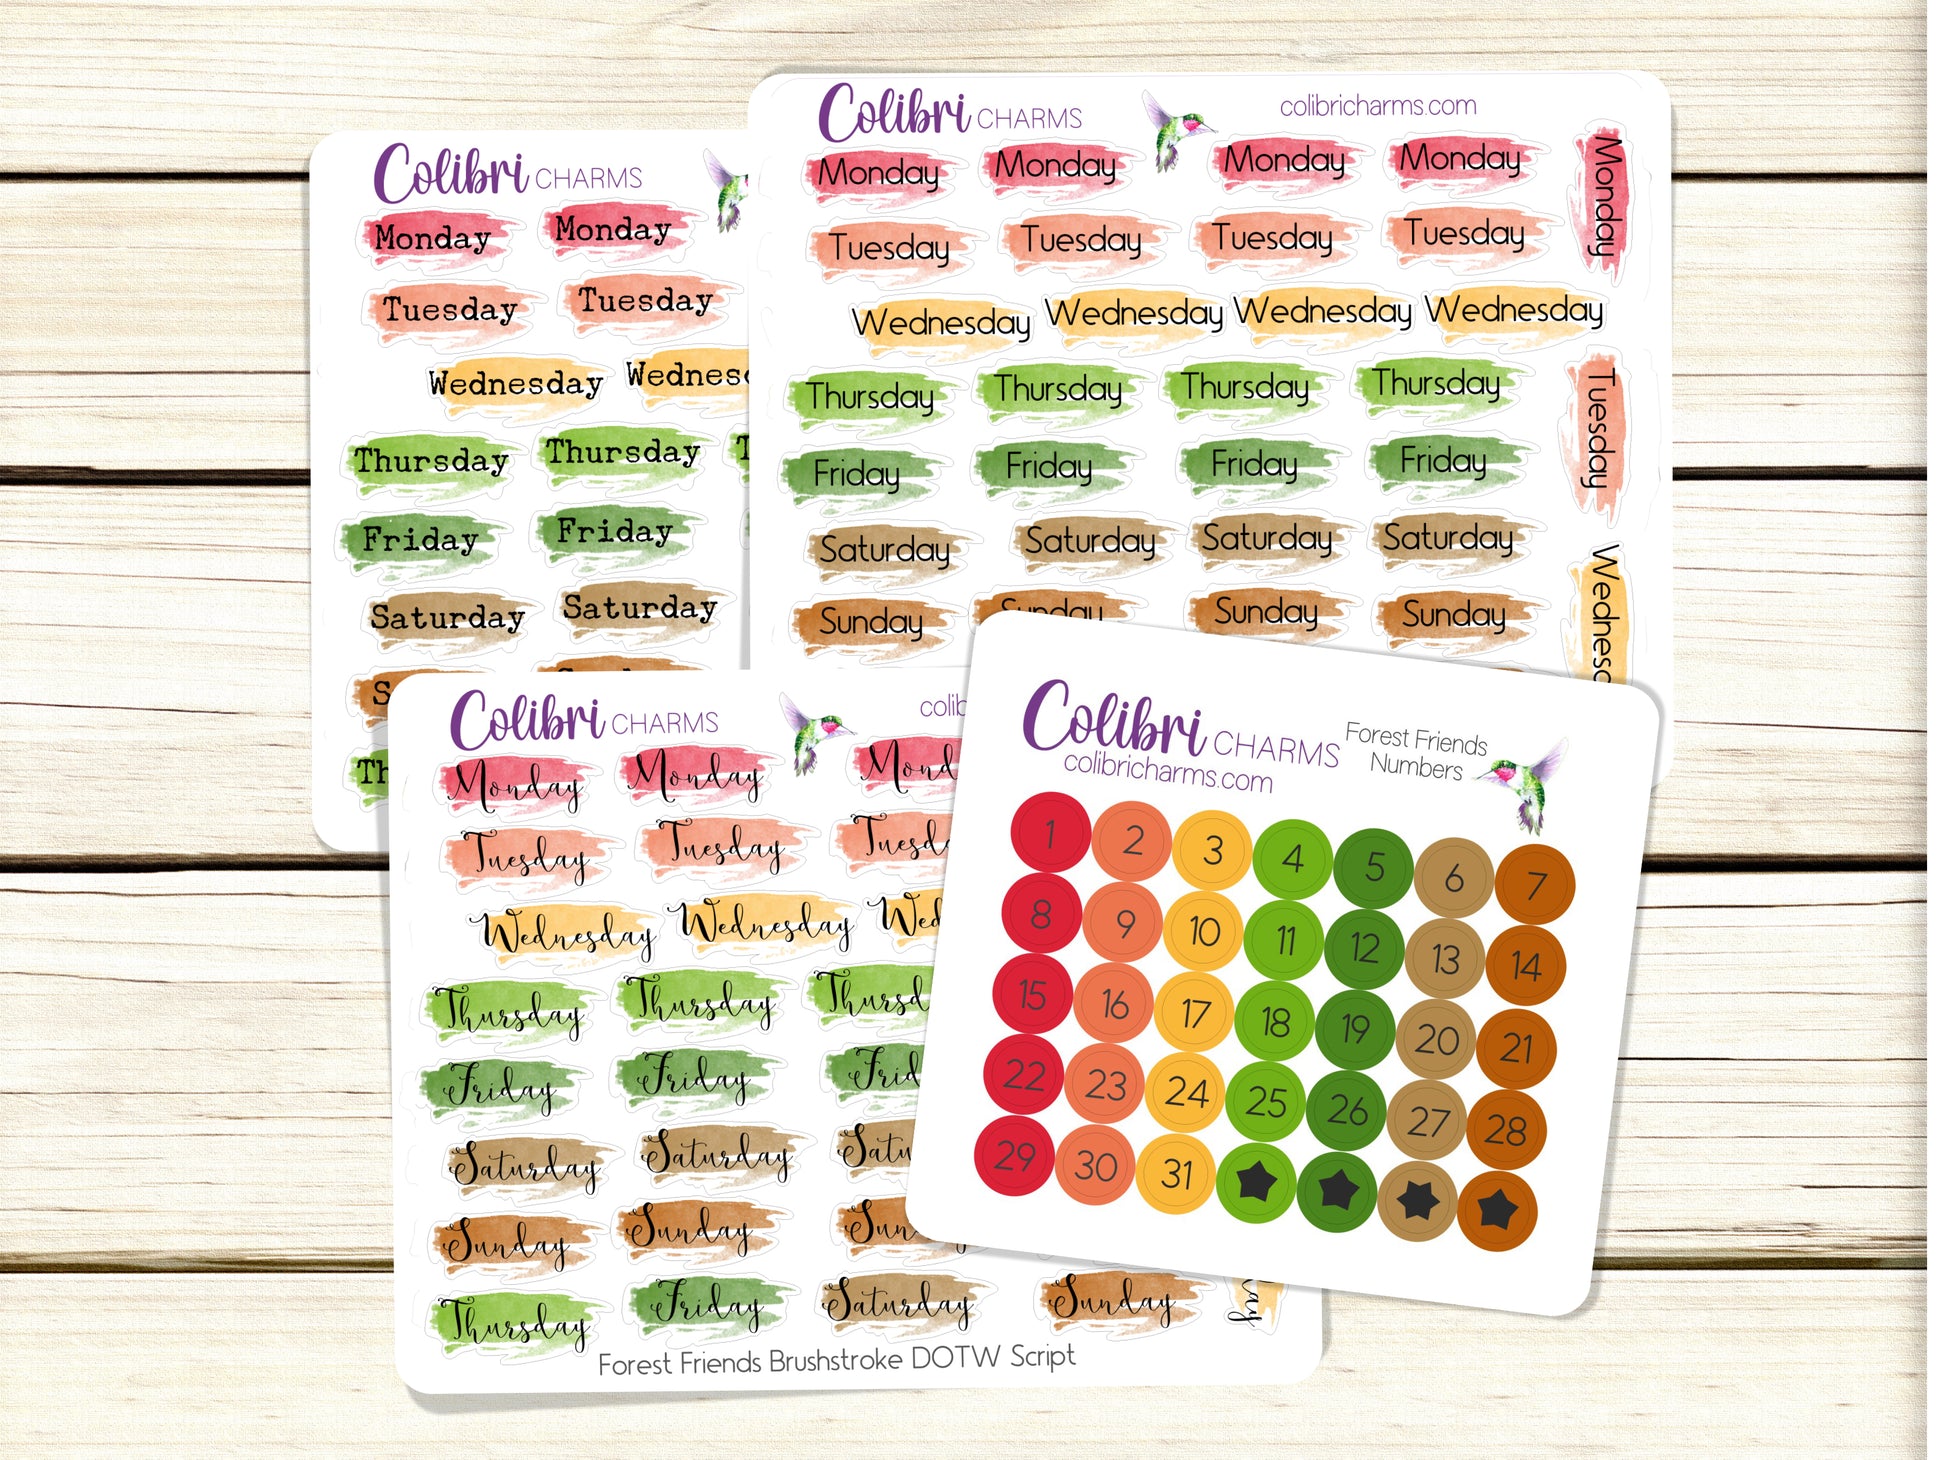 Colibri CHARMS
Monday Monday
Tuesday Tuesday
Wednesday
Thursday Thursday
Friday Friday
Saturday Saturday
Colibri CHARMS colibricharms.com
Monday Monday Monday Monday Monday
Tuesday Tuesday Tuesday Tuesday
Wednesday Wednesday Wednesday Wednesday
Thursday Thursday Thursday Thursday
Tuesday
Friday Friday Friday Friday
Saturday Saturday Saturday Saturday
Sunday Sunday Sunday Sunday
Colibri CHARMS
Monday Monday
Tuesday Tuesday
Wednesday Wednesday
Thursday Thursday
Friday Friday
Saturday Saturday
Sunday Sunday
Thursday Friday Saturday Sunday
Forest Friends Brushstroke DOTW Script
Colibri CHARMS
colibricharms.com
Forest Friends
Numbers
1 2 3 4 5 6 7
8 9 10 11 12 13 14
15 16 17 18 19 20 21
22 23 24 25 26 27 28
29 30 31